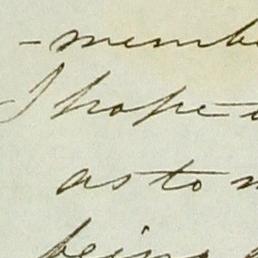 - membe
I hope
as to
being